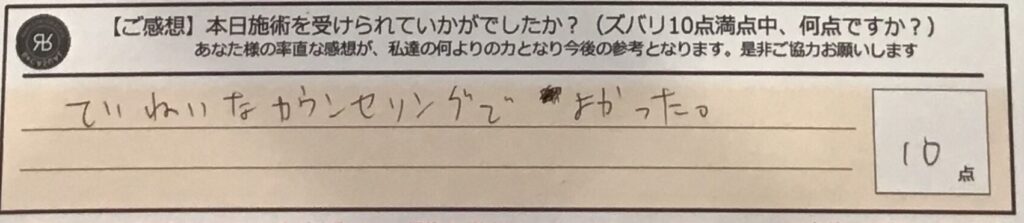 【ご感想】本日施術を受けられていかがでしたか？（ズバリ10点満点中、何点ですか？）
あなた様の率直な感想が、私達の何よりの力となり今後の参考となります。是非ご協力お願いします
ていねいなカウンセリングでよかった。
10点